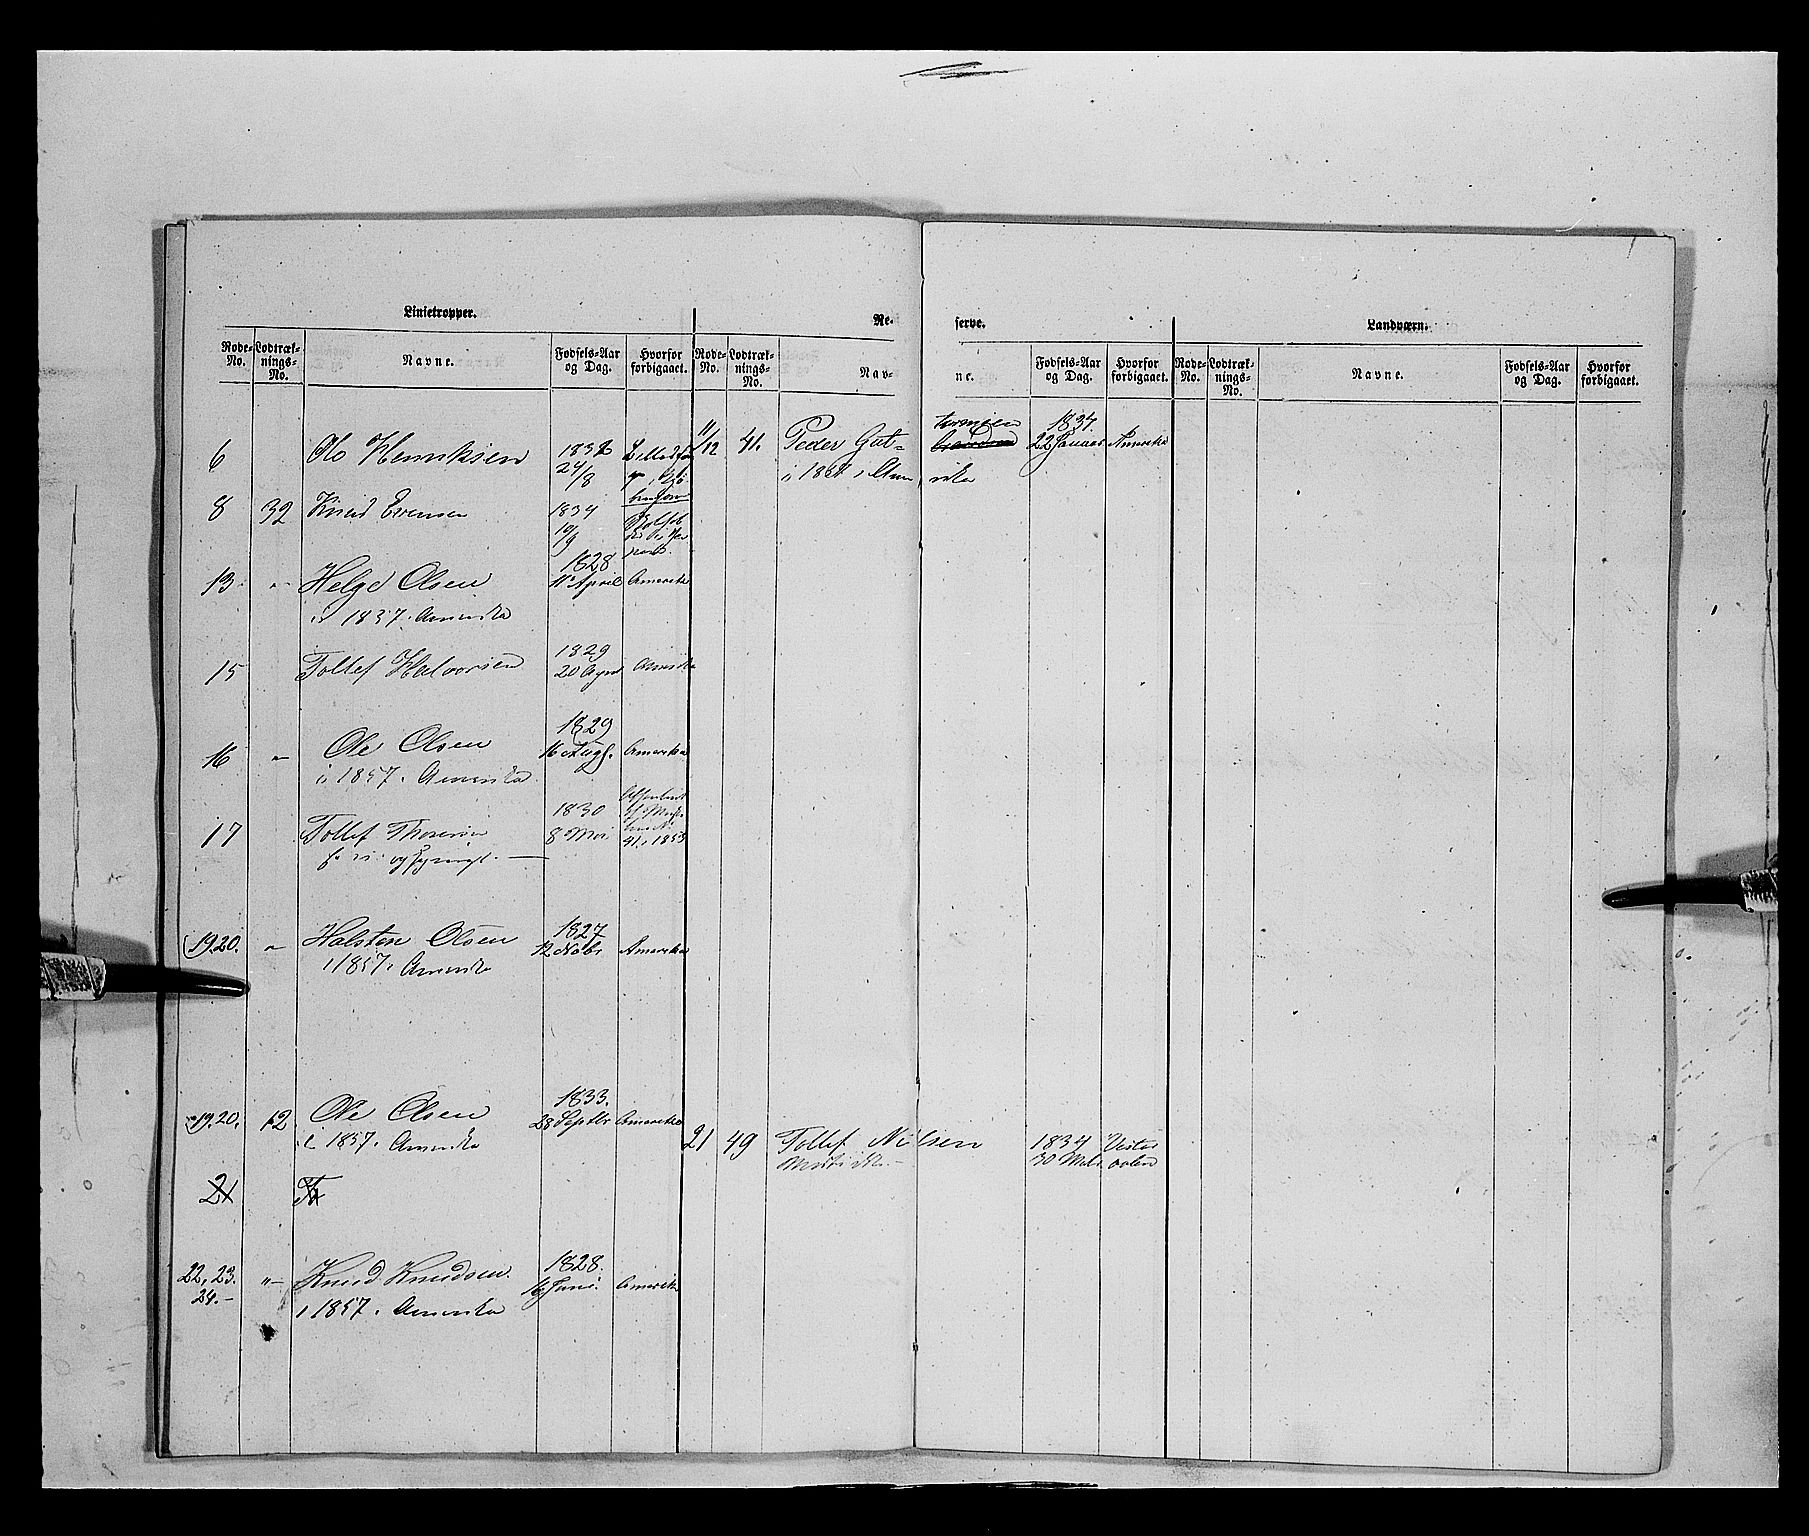 Linietropper.
Re-
serve.
Landværn.
Rode-No. Lodtræk-nings-No. Navne. Fødsels-Aar og Dag. Hvorfor forbigaaet. Rode-No. Lodtræk-nings-No. Nav-
ne. Fødsels-Aar og Dag. Hvorfor forbigaaet. Rode-No. Lodtræk-nings-No. Navne. Fødsels-Aar og Dag. Hvorfor forbigaaet.
6 Ole Henriksen 24/8
8 32 Knud Evensen 1834 19/9
13 " Helge Olsen 1828 11 April Amerika
i 1857 i Amerika
15 Tollef Halvorsen 1829 20 Amerika
16 " Ole Olsen 1829 16 Augs. Amerika
i 1857 i Amerika
17 Tollef Thoresen 1830 8 Mai 1853
19.20. " Halsten Olsen 1827 12 Novbr Amerika
i 1857 i Amerika
19.20. 12 Ole Olsen 1833. 28 Septbr Amerika
i 1857 i Amerika
21
22, 23. 24.- " Knud Knudsen. 1828. 16 Juni. Amerika
i 1857 i Amerika
11/12 41. Peder Gut-
tormsen 1837. 22 Januar Amerika
i Ame rika
21 49 Tollef Nilsen 1834 30